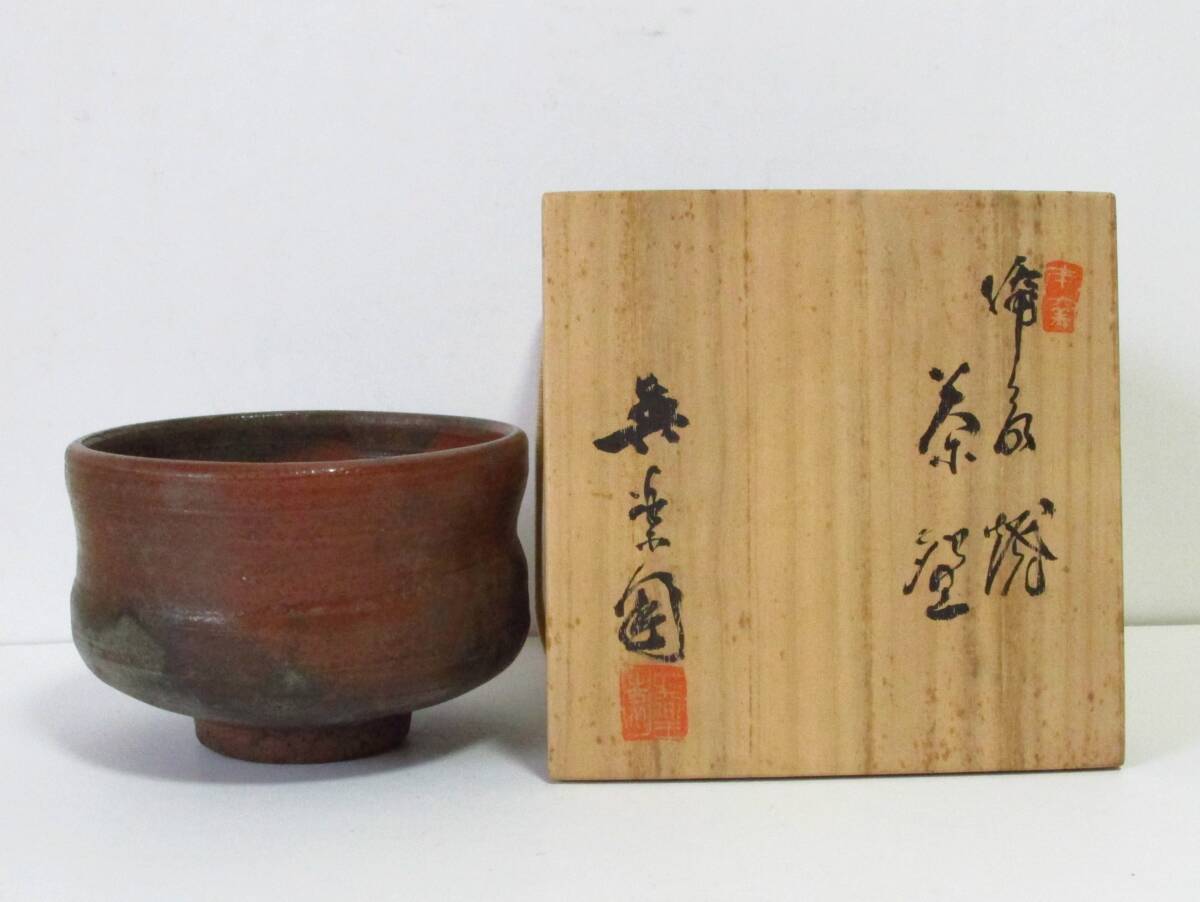 備前焼
茶盌
無楽園